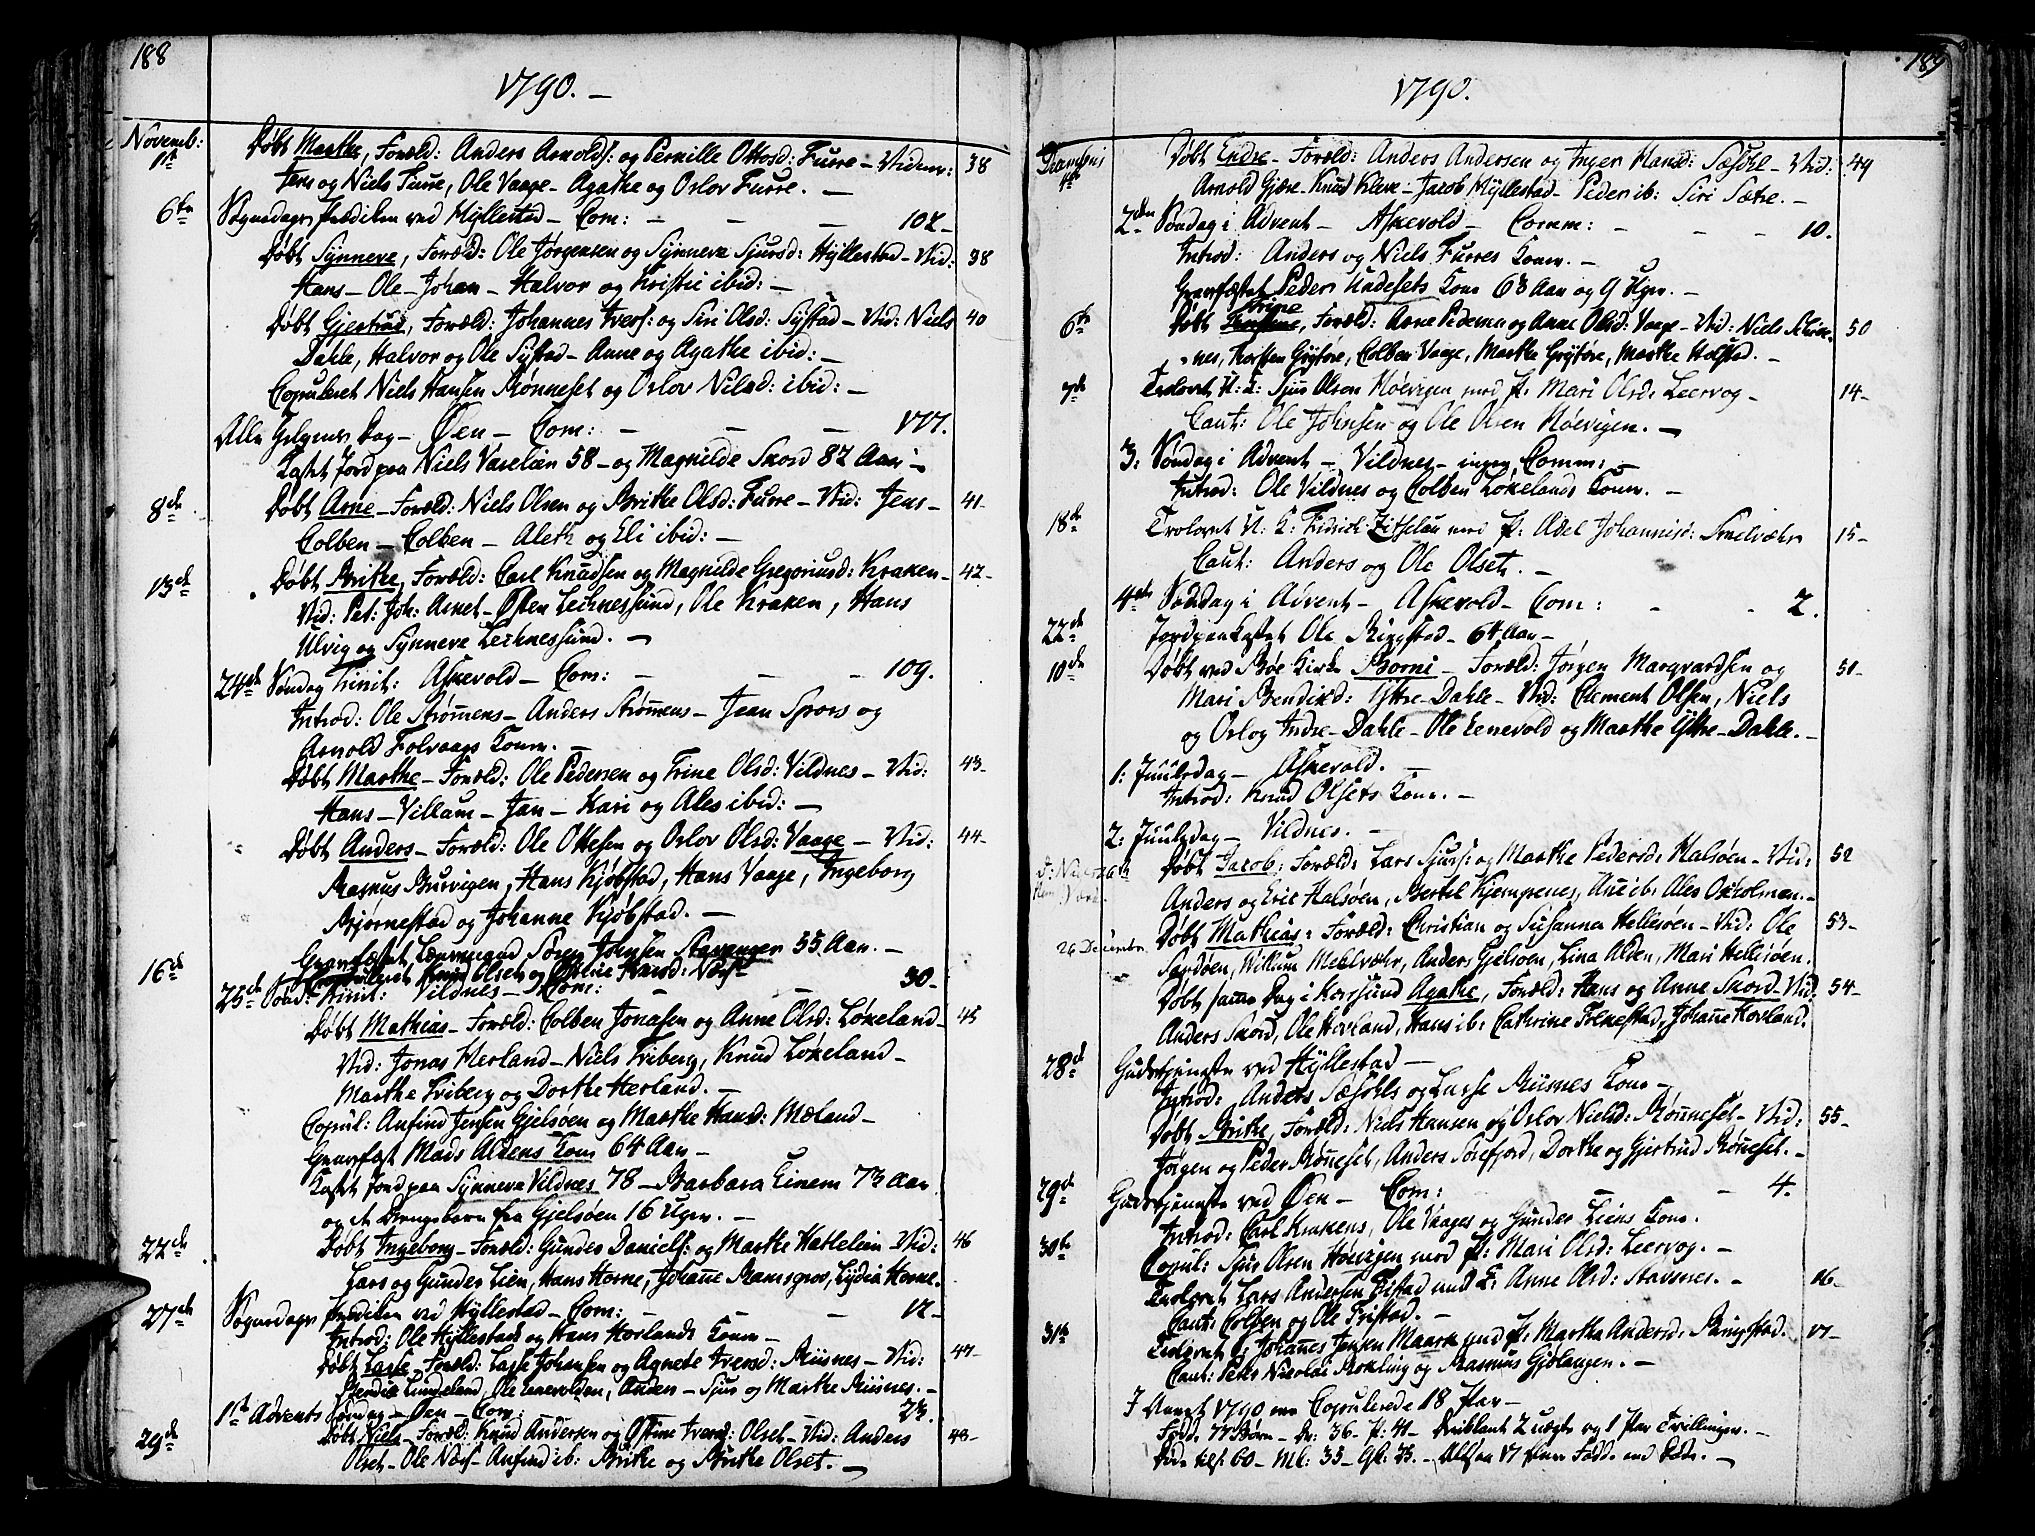 188
1790. –
Novemb:
1st Døbt Marthe, Foræld: Anders Arnolds: og Pernille Ottosd: Furre – Vidner: 38
Jens og Niels Furre, Ole Vaage – Agathe og Orlov Furre. –
6te Søgnedags Prædiken ved Hyllestad – Com: – – – 102 –
Døbt Synneve, Foræld: Ole Jørgensen og Synneve Sjursd: Hyllestad – Vid: 38
Hans – Ole – Johan – Halvor og Kristi ibid: –
Døbt Gjertrud, Foræld: Johannes Ivers: og Siri Olsd: Systad – Vid: Niels 40
Dahle, Halvor og Ole Systad – Anne og Agathe ibid: –
Copuleret Niels Hansen Rønneset og Orlov Nilsd: ibid: –
Alle Helgens Dag – Øen – Com: – – – 177.
Kastet Jord paa Niels Vaselien 58 – og Magnilde Skord 82 Aar –
8de Døbt Arne – Foræld: Niels Olsen og Brithe Olsd: Furre – Vid: Jens – 41 –
Colben – Colben – Aleth og Eli ibid: –
13de Døbt Brithe, Foræld: Carl Knudsen og Magnilde Gregoriusd: Kraken – 42 –
Vid: Pet: Joh: Arnet – Østen Leknessund, Ole Kraken, Hans
Ulvig og Synneve Leknessund. –
24de Søndag Trinit: Askevold – Com: – – – 109.
Introd: Ole Strømens – Anders Strømens – Jean Spors og
Arnold Folvaags Koner. –
Døbt Marthe – Foræld: Ole Pedersen og Trine Olsd: Vildnes – Vid: 43 –
Hans – Villum – Jan – Kari og Ales ibid: –
Døbt Anders – Foræld: Ole Ottesen og Orlov Olsd: Vaage – Vid: 44 –
Rasmus Burvigen, Hans Kjøbstad, Hans Vaage, Ingeborg
Bjørnestad og Johanne Kjøbstad. –
Gravfæstet Lænsmand Søren Johnsen Stavanger 55 Aar. –
16de Copuleret Knud Olset og Østine Iversd: Næss
25de Sønd: Trinit: Vildnes – Com: – – 30 –
Døbt Mathias – Foræld: Colben Jonasen og Anne Olsd: Løkeland – 45
Vid: Jonas Herland – Niels Friberg, Knud Løkeland –
Marthe Friberg og Dorthe Herland. –
Copul: Anfind Jensen Gjelsøen og Marthe Hansd: Mæland –
Gravfæst Mads Aldens Kone 64 Aar –
Kastet Jord paa Synneve Vildnes 78 – Barbara Einem 73 Aar
og et Drengebarn fra Gjelsøen 16 Uger. –
22de Døbt Ingeborg – Foræld: Gunder Daniels: og Marthe Hattelein – Vid: 46
Lars og Gunder Lien, Hans Horne, Johane Ramsgrov, Lydia Horne.
27de Søgnedags Prædiken ved Hyllestad – Com: – – – 12 –
Introd: Ole Hyllestads og Hans Horlands Koner –
Døbt Lasse – Foræld: Lasse Johansen og Agnete Iversd: Risnes – Vid: 47 –
Lundeland, Ole Enevolden, Anders – Sjur og Marthe Risnes. –
1st Advents Søndag – Øen – Com: 23.
29de Døbt Niels – Foræld: Knud Andersen og Østine Iversd: Olset – Vid: Anders 48 –
Olset – Ole Næss – Anfind ib: Brithe og Brithe Olset. –
189
1790.
Decembris
4de Døbt Endre – Foræld: Anders Andersen og Inger Hansd: Sæsøle – Vid: 49
Arnold Gjære – Knud Kleve – Jacob Hyllestad – Peder ib: Siri Sætre. –
2den Søndag i Advent – Askevold – Comm: – – – 10.
Introd: Anders og Niels Furres Koner. –
Gravfæstet Peder Hadesets Kone 68 Aar og 9 Uger. –
Trine
6te Døbt, Foræld: Arne Pedersen og Anne Olsd: Vaage – Vid: Niels Skivenes, 50
Torsten Grytøre, Colben Vaage, Marthe Grytøre, Marthe Holstad. –
7de Trolovet U: K: Sjur Olsen Høevigen med P: Mari Olsd: Leervog – 14 –
Caut: Ole Johnsen og Ole Olsen Høevigen. –
3: Søndag i Advent – Vildnes – ingen Comm: –
Introd: Ole Vildnes og Colben Løkelands Koner. –
18de Trolovet U: K: Fridrich Zitzelau med P: Adel Johannisd: Smelvæhr 15 –
Caut: Anders og Ole Olset. –
4de Søndag i Advent – Askevold – Com: – – 2.
22de Jordpaakastet Ole Ringstad – 64 Aar –
10de Døbt ved Bøe Kirke Borni – Foræld: Jørgen Marqvardsen og 51 –
Mari Bendixd: Yttre – Dahle – Vid: Clement Olsen, Niels
og Orlog Indre – Dahle – Ole Eenevold og Marthe Yttre – Dahle. –
1: Juulsdag – Askevold. –
Introd: Knud Olsets Kone. –
2: Juulsdag – Vildnes. –
Døbt Jacob, Foræld: Lars Sjurs: og Marthe Pedersd: Halsøen – Vid: 52
Anders og Eric Halsøen, Bertel Kjempenes, Ane ib: Ales Oxholmen. –
26 December Døbt Mathias: Foræld: Christian og Susanna Hellesøen – Vid: Ole 53 –
Sandøen, Willum Meelvæhr, Anders Gjelsøen, Lina Alden, Mari Hellisøen.
Døbt samme Dag i Korssund Agathe, Foræld: Hans og Anne Skord – Vid: 54 –
Anders Skord, Ole Horland, Hans ib: Cathrine Folkestad, Johane Horland.
28de Gudstjeneste ved Hyllestad –
Introd: Anders Sæsøls og Lasse Risnes Koner –
Døbt Brithe, Foræld: Niels Hansen og Orlov Nielsd: Rønneset – Vid: 55 –
Jørgen og Peder Røneset, Anders Sørefjord, Dorthe og Gjertrud Røneset. –
29de Gudstjeneste ved Øen – Com: – – 4.
Introd: Carl Krakens, Ole Vaages og Gunder Liens Koner.
30te Copul: Sjur Olsen Høevigen med P: Mari Olsd: Leervog. –
Trolovet Lars Andersen Fristad med P: Anne Olsd: Stavsnes. – 16 –
Caut: Colben og Ole Fristad. –
31te Trolovet Johannes Jensen Maare med P: Marthe Andersd: Ringstad. 17 –
Caut: Peter Nicolai Rokling og Rasmus Gjølangen. –
I Aaret 1790 ere Copulerede 18 Par –
Fødde 77 Børn – Dr: 36 – P: 41 – Iblant 2 uægte og 1 Par Tvillinger. –
Døde tils: 60 – Mk: 35 – Qk: 25. – Altsaa 17 flere Fødde end Døde. –